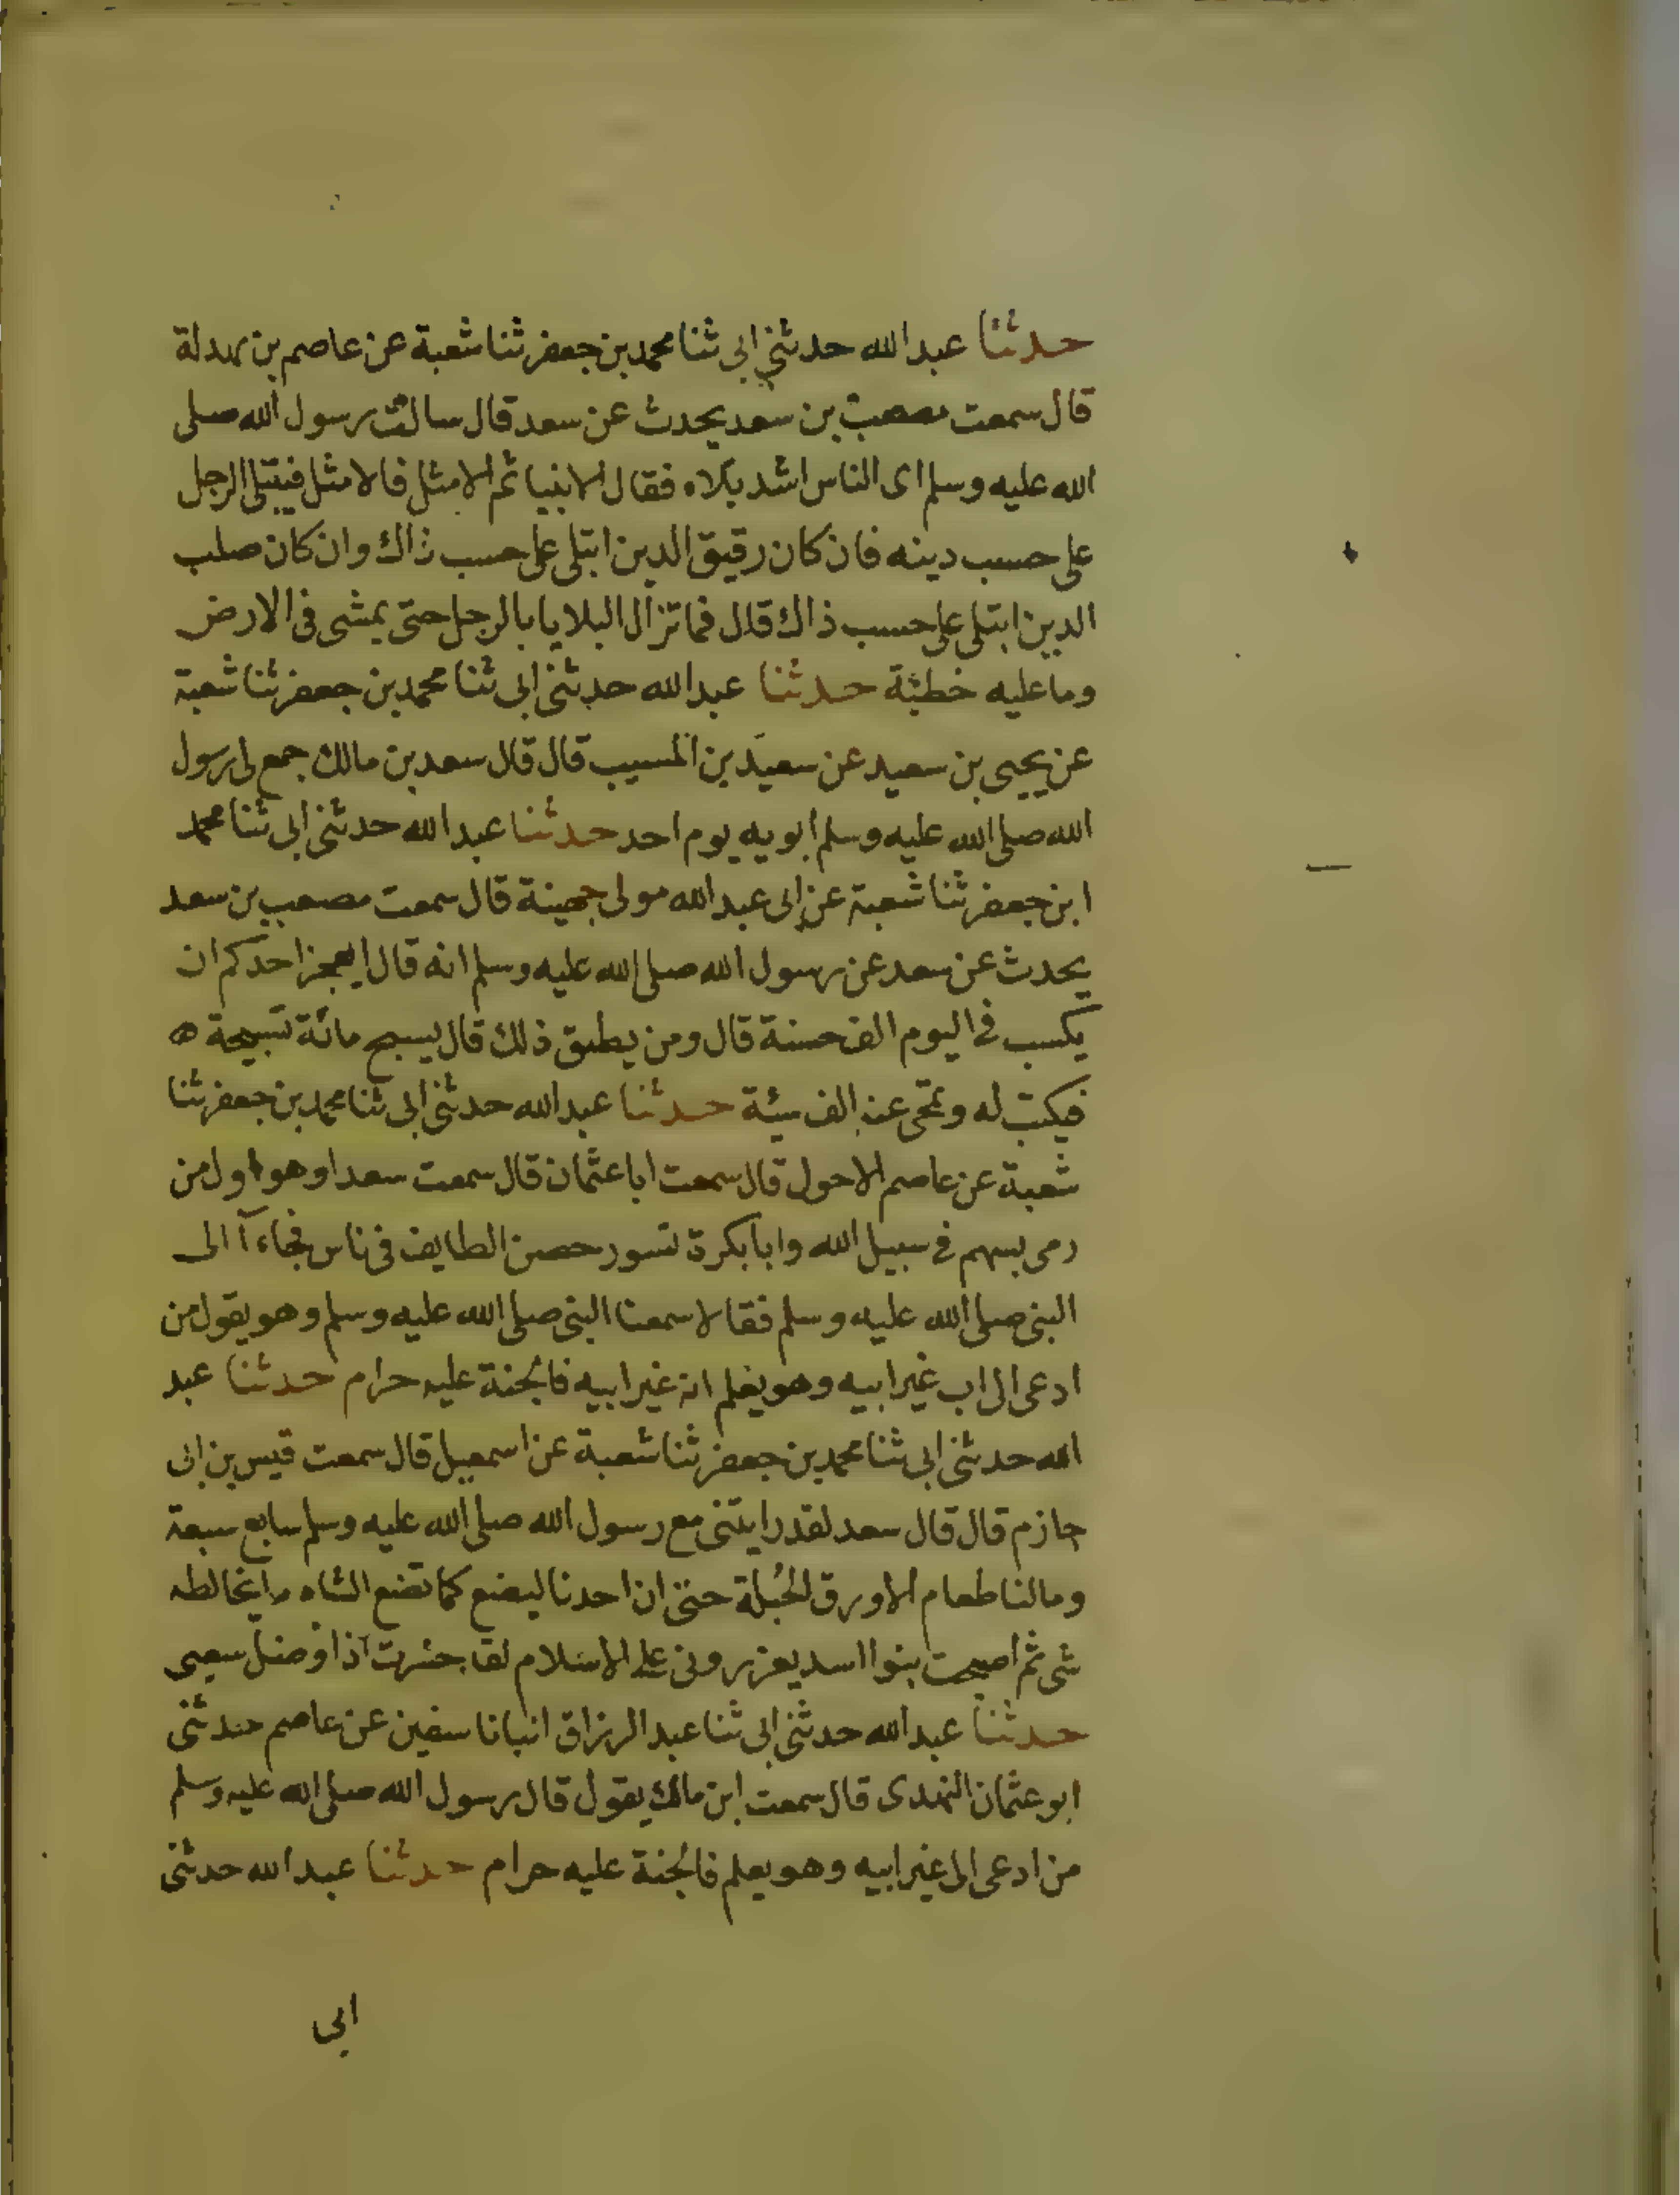 حدثنا عبد الله حدثني ابي ثنا محمد بن جعفر ثنا شعبة عن عاصم بن بهدلة
قال سمعت مصعب بن سعد يحدث عن سعد قال سالت رسول الله صلى
الله عليه وسلم اى الناس اشد بلاء فقال الانبيا ثم الامثل فالامثل فيبتلى الرجل
على حسب دينه فان كان رقيق الدين ابتلى على حسب ذاك وان كان صلب
الدين ابتلى على حسب ذاك قال فما تزال البلايا بالرجل حتى يمشى فى الارض
وما عليه خطئة حدثنا عبد الله حدثنى ابى ثنا محمد بن جعفر ثنا شعبة
عن يحيى بن سعيد عن سعيد بن المسيب قال قال سعد بن مالك جمع لى رسول
الله صلى الله عليه وسلم ابويه يوم احد حدثنا عبد الله حدثنى ابى ثنا محمد
ابن جعفر ثنا شعبة عن ابى عبد الله مولى جهينة قال سمعت مصعب بن سعد
يحدث عن سعد عن رسول الله صلى الله عليه وسلم انه قال ايعجز احدكم ان
يكسب فى اليوم الف حسنة قال ومن يطيق ذلك قال يسبح مائة تسبيحة ه
فيكتب له وتمحى عنه الف سيئة حدثنا عبد الله حدثنى ابى ثنا محمد بن جعفر ثنا
شعبة عن عاصم الاحول قال سمعت ابا عثمان قال سمعت سعدا وهو اول من
رمى بسهم فى سبيل الله وابا بكرة تسور حصن الطايف فى ناس فجاءآ الى
النبى صلى الله عليه وسلم فقالا سمعنا النبى صلى الله عليه وسلم وهو يقول من
ادعى الى اب غير ابيه وهو يعلم انه غير ابيه فالجنة عليه حرام حدثنا عبد
الله حدثنى ابى ثنا محمد بن جعفر ثنا شعبة عن اسمعيل قال سمعت قيس بن ابى
حازم قال قال سعد لقد رايتنى مع رسول الله صلى الله عليه وسلم سابع سبعة
وما لنا طعام الا ورق الحُبلة حتى ان احدنا ليضع كما تضع الشاه ما يخالطه
شى ثم اصبحت بنوا اسد يعزرونى على الاسلام لقد خسرت اذا وضل سعيى
حدثنا عبد الله حدثنى ابى ثنا عبد الرزاق انبانا سفين عن عاصم حدثنى
ابو عثمان النهدى قال سمعت ابن مالك يقول قال رسول الله صلى الله عليه وسلم
من ادعى الى غير ابيه وهو يعلم فالجنة عليه حرام حدثنا عبد الله حدثنى
ابى